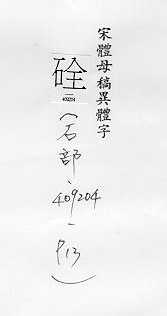 宋體母稿異體字
硂
409204
(石部、409204、P.13)